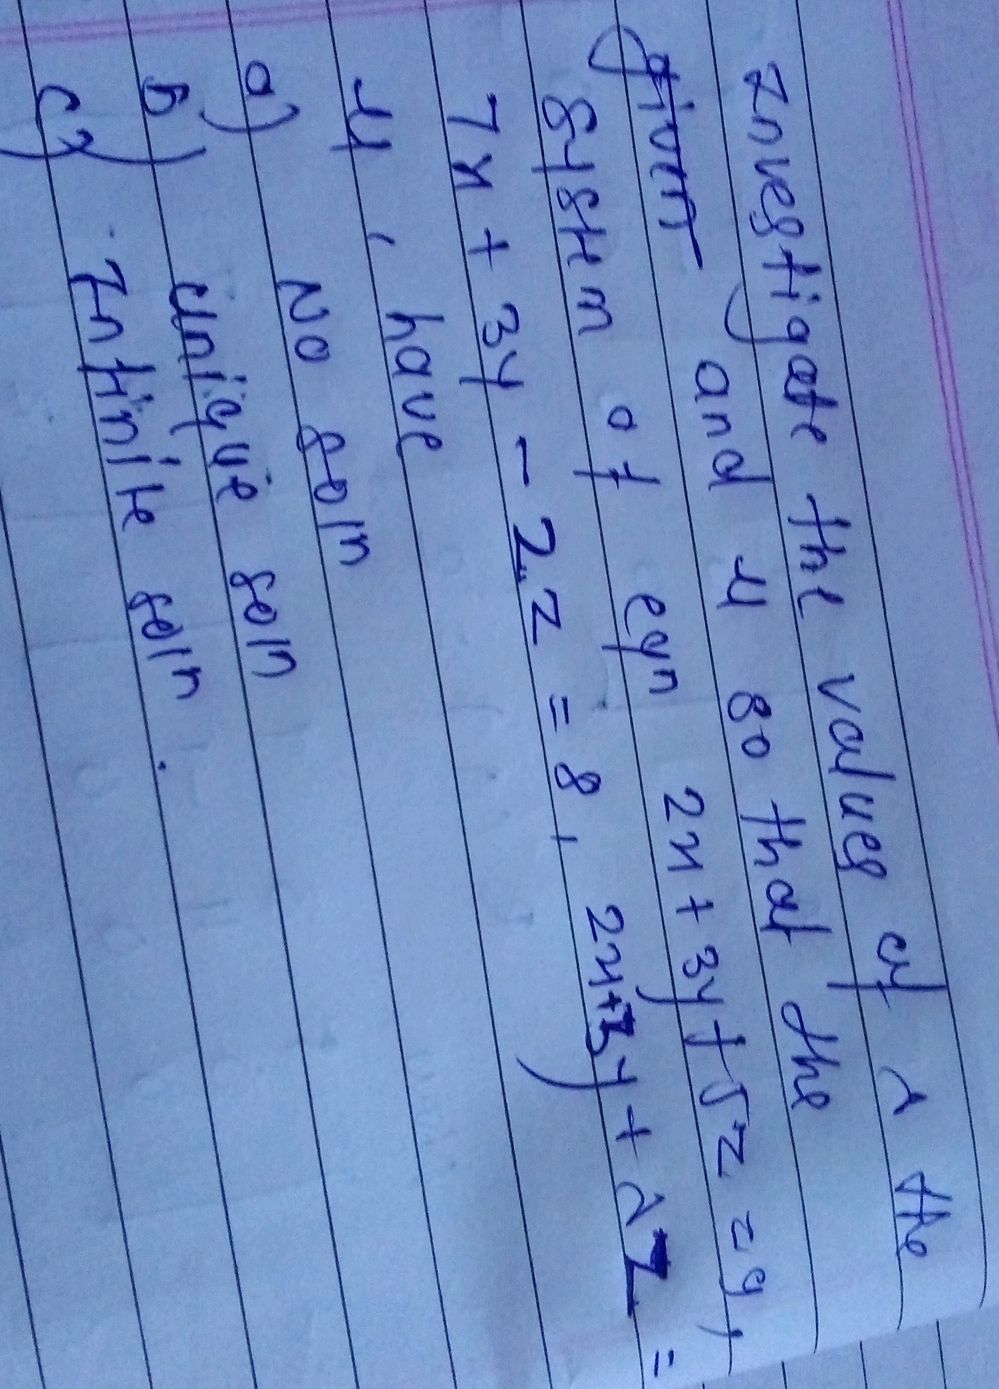 Investigate the values of λ the
given and μ so that the
system of eqn 2x + 3y + 5z = 9,
7x + 3y - 2z = 8, 2x + 3y + λz =
μ, have
a) No soln
b) unique soln
c) Infinite soln.